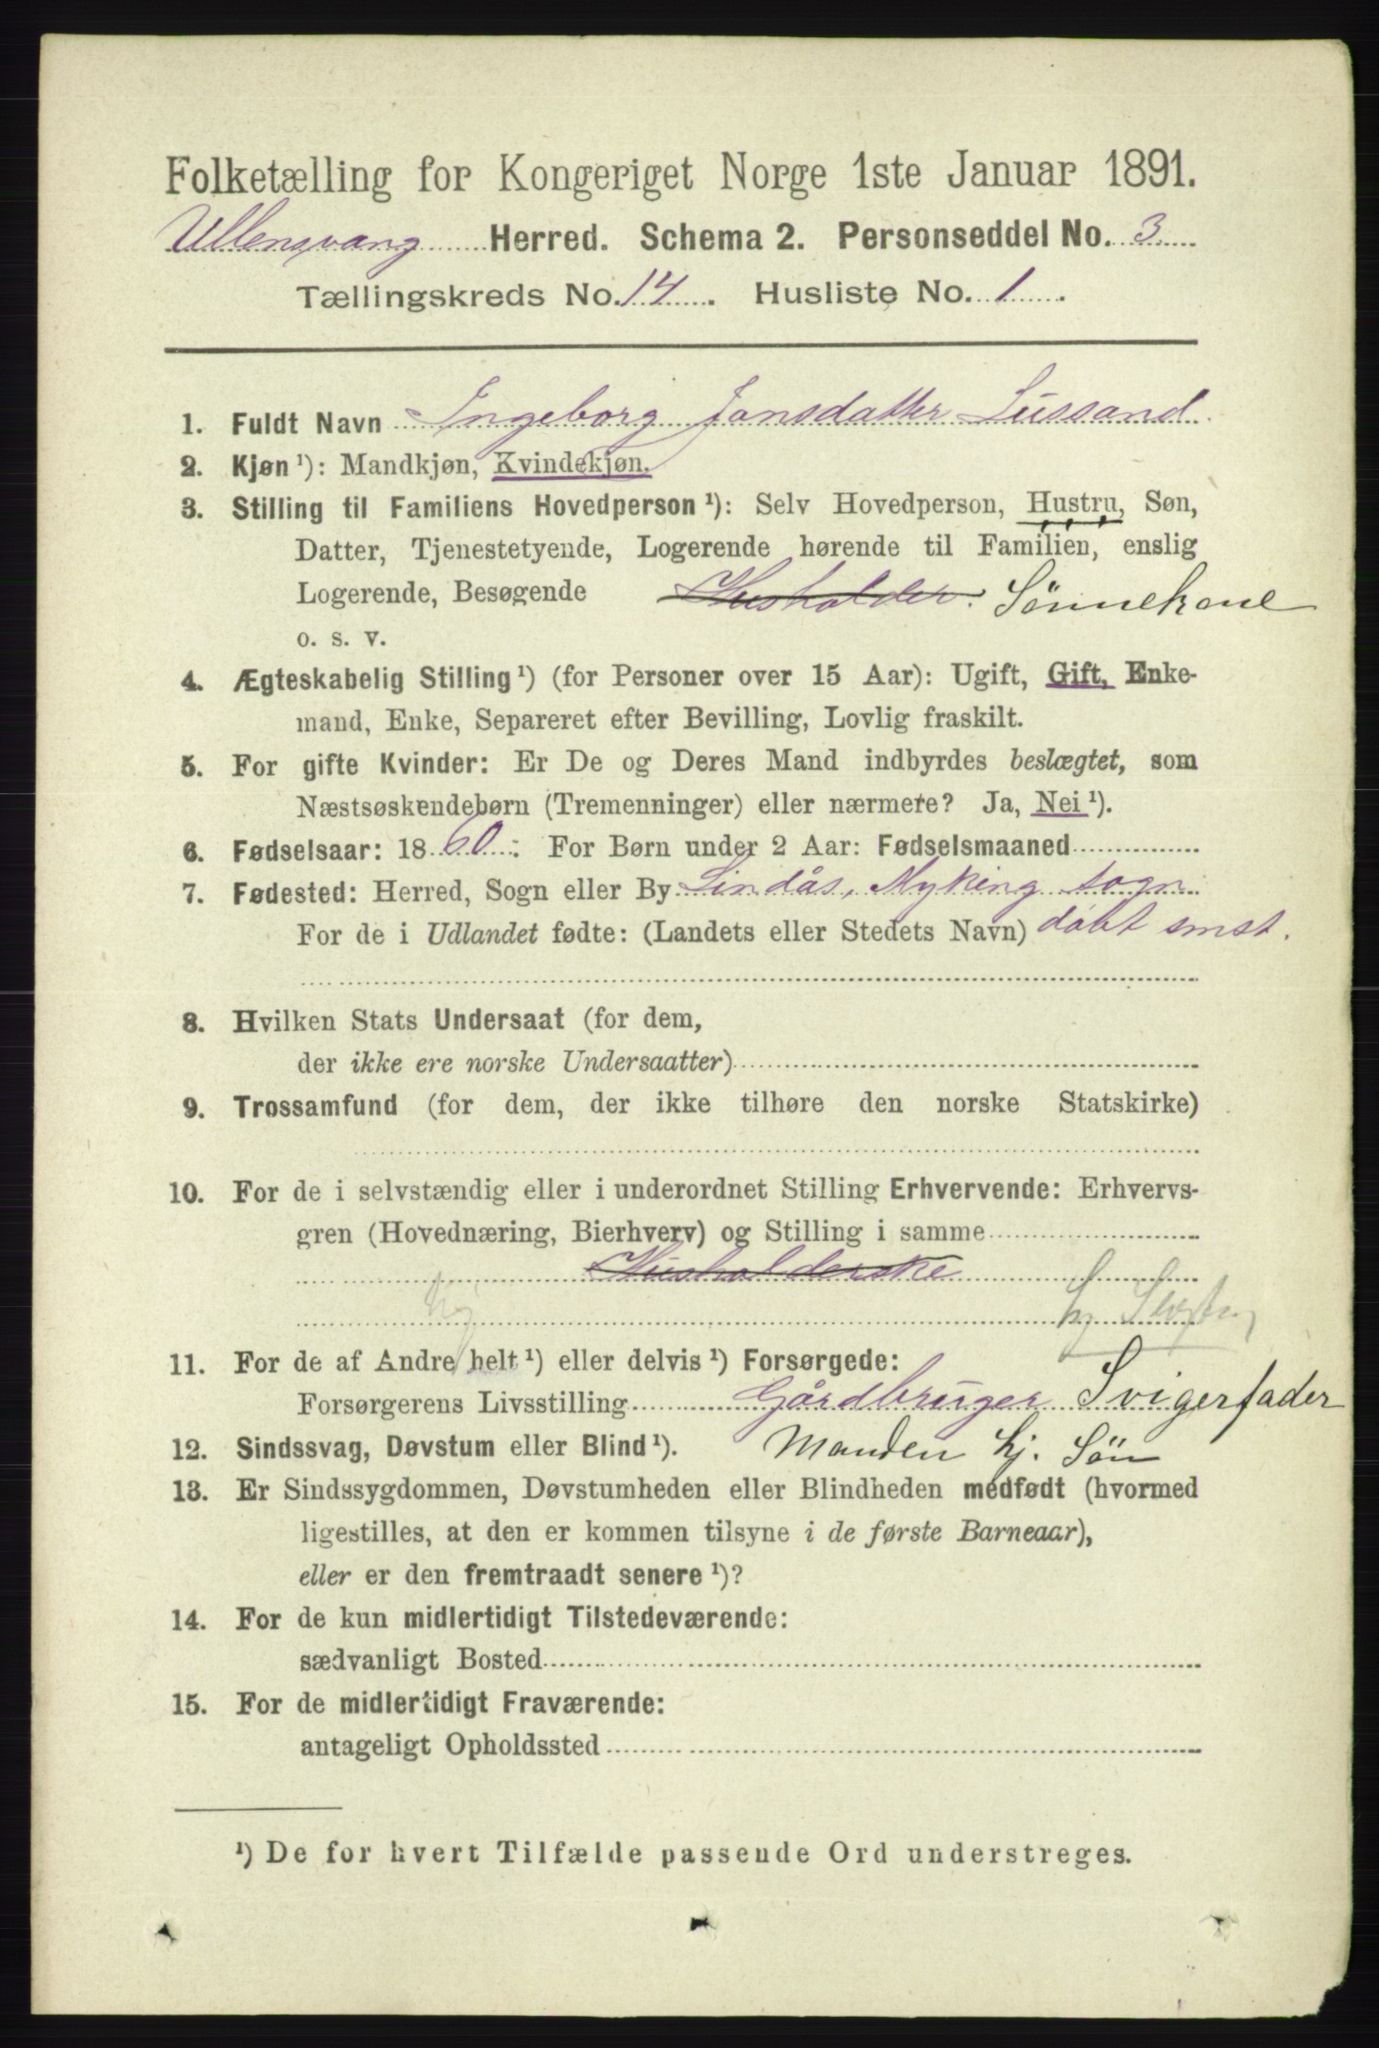 Folketælling for Kongeriget Norge 1ste Januar 1891.
Ullensvang Herred. Schema 2. Personseddel No. 3
Tællingskreds No. 14. Husliste No. 1.
1. Fuldt Navn Ingeborg Jonsdatter Lussand
2. Kjøn ¹): Mandkjøn, Kvindekjøn.
3. Stilling til Familiens Hovedperson ¹): Selv Hovedperson, Hustru, Søn,
Datter, Tjenestetyende, Logerende hørende til Familien, enslig
Logerende, Besøgende Husholder. Sönnekone
o. s. v.
4. Ægteskabelig Stilling ¹) (for Personer over 15 Aar): Ugift, Gift, Enke-
mand, Enke, Separeret efter Bevilling, Lovlig fraskilt.
5. For gifte Kvinder: Er De og Deres Mand indbyrdes beslægtet, som
Næstsøskendebørn (Tremenninger) eller nærmere? Ja, Nei ¹).
6. Fødselsaar: 1860. For Børn under 2 Aar: Fødselsmaaned
7. Fødested: Herred, Sogn eller By Lindås, Myking sogn
For de i Udlandet fødte: (Landets eller Stedets Navn) döbt smst.
8. Hvilken Stats Undersaat (for dem,
der ikke ere norske Undersaatter)
9. Trossamfund (for dem, der ikke tilhøre den norske Statskirke)
10. For de i selvstændig eller i underordnet Stilling Erhvervende: Erhvervs-
gren (Hovednæring, Bierhverv) og Stilling i samme
Husholderske
hj
11. For de af Andre helt ¹) eller delvis ¹) Forsørgede:
Forsørgerens Livsstilling Gårdbruger Svigerfader
12. Sindssvag, Døvstum eller Blind ¹). Manden hj. Sön
13. Er Sindssygdommen, Døvstumheden eller Blindheden medfødt (hvormed
ligestilles, at den er kommen tilsyne i de første Barneaar),
eller er den fremtraadt senere ¹)?
14. For de kun midlertidigt Tilstedeværende:
sædvanligt Bosted
15. For de midlertidigt Fraværende:
antageligt Opholdssted
¹) De for hvert Tilfælde passende Ord understreges.